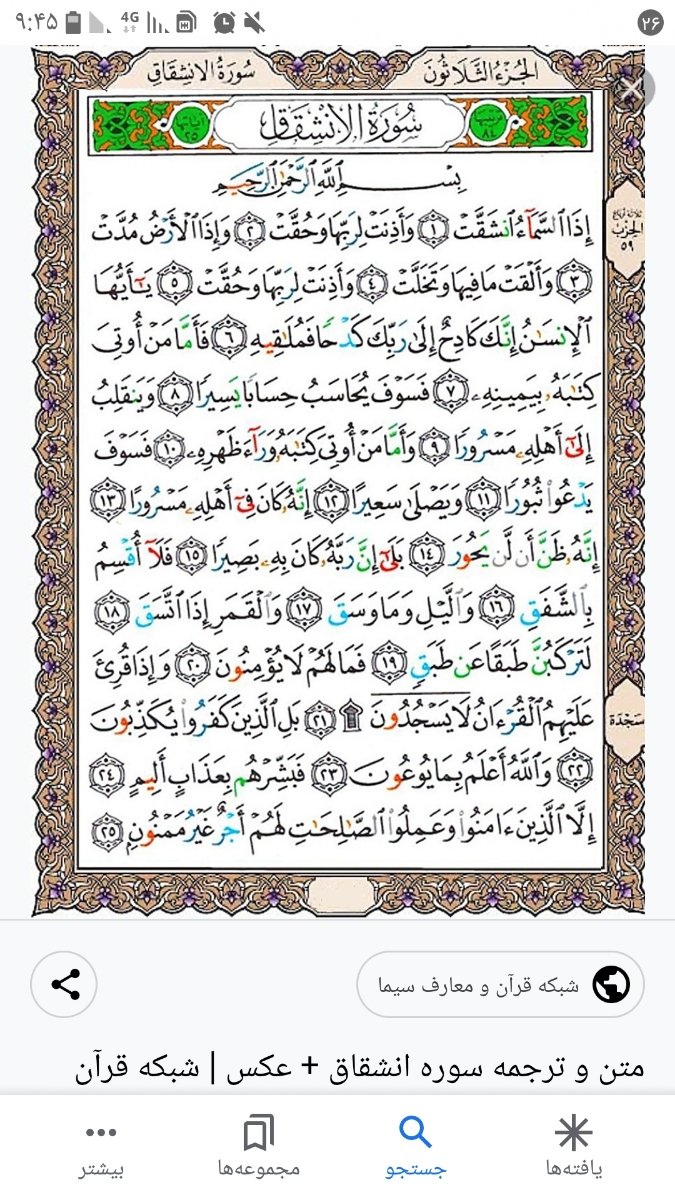 ۹:۴۵ 4G ۲۶
سُورَةُ الانشِقَاقِ الجُزءُ الثَّلَاثُونَ
ترتيبها ٨٤ سُورَةُ الانشِقَاقِ آياتها ٢٥
بِسْمِ ٱللَّهِ ٱلرَّحْمَٰنِ ٱلرَّحِيمِ
إِذَا ٱلسَّمَآءُ ٱنشَقَّتْ ١ وَأَذِنَتْ لِرَبِّهَا وَحُقَّتْ ٢ وَإِذَا ٱلْأَرْضُ مُدَّتْ
٣ وَأَلْقَتْ مَا فِيهَا وَتَخَلَّتْ ٤ وَأَذِنَتْ لِرَبِّهَا وَحُقَّتْ ٥ يَٰٓأَيُّهَا
ٱلْإِنسَٰنُ إِنَّكَ كَادِحٌ إِلَىٰ رَبِّكَ كَدْحًا فَمُلَٰقِيهِ ٦ فَأَمَّا مَنْ أُوتِىَ
كِتَٰبَهُۥ بِيَمِينِهِۦ ٧ فَسَوْفَ يُحَاسَبُ حِسَابًا يَسِيرًا ٨ وَيَنقَلِبُ
إِلَىٰٓ أَهْلِهِۦ مَسْرُورًا ٩ وَأَمَّا مَنْ أُوتِىَ كِتَٰبَهُۥ وَرَآءَ ظَهْرِهِۦ ١٠ فَسَوْفَ
يَدْعُوا۟ ثُبُورًا ١١ وَيَصْلَىٰ سَعِيرًا ١٢ إِنَّهُۥ كَانَ فِىٓ أَهْلِهِۦ مَسْرُورًا ١٣
إِنَّهُۥ ظَنَّ أَن لَّن يَحُورَ ١٤ بَلَىٰٓ إِنَّ رَبَّهُۥ كَانَ بِهِۦ بَصِيرًا ١٥ فَلَآ أُقْسِمُ
بِٱلشَّفَقِ ١٦ وَٱلَّيْلِ وَمَا وَسَقَ ١٧ وَٱلْقَمَرِ إِذَا ٱتَّسَقَ ١٨
لَتَرْكَبُنَّ طَبَقًا عَن طَبَقٍ ١٩ فَمَا لَهُمْ لَا يُؤْمِنُونَ ٢٠ وَإِذَا قُرِئَ
عَلَيْهِمُ ٱلْقُرْءَانُ لَا يَسْجُدُونَ ۩ ٢١ بَلِ ٱلَّذِينَ كَفَرُوا۟ يُكَذِّبُونَ
٢٢ وَٱللَّهُ أَعْلَمُ بِمَا يُوعُونَ ٢٣ فَبَشِّرْهُم بِعَذَابٍ أَلِيمٍ ٢٤
إِلَّا ٱلَّذِينَ ءَامَنُوا۟ وَعَمِلُوا۟ ٱلصَّٰلِحَٰتِ لَهُمْ أَجْرٌ غَيْرُ مَمْنُونٍۭ ٢٥
الحِزْبِ
٥٩
سَجْدَة
شبکه قرآن و معارف سیما
متن و ترجمه سوره انشقاق + عکس | شبکه قرآن
یافته‌ها جستجو مجموعه‌ها بیشتر